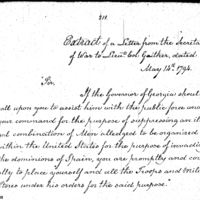 211
Extract of a Letter from the Secreta
of War to Lieut. Col. Gaither, dated
May 14th. 1794.
Sir,
If the Governor of Georgia shou
all upon you to assist him with the public force und
your command for the purpose of suppressing an il
combination of Men alledged to be organized
within the United States for the purpose of invading
the dominions of Spain, you are promptly and cor
ally to place yourself and all the Troops and Mili
under his orders for the said purpose."